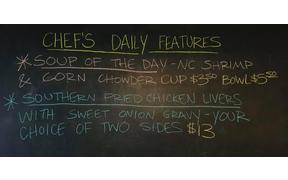 CHEF'S DAILY FEATURES
* SOUP OF THE DAY - NC SHRIMP
& CORN CHOWDER CUP $3.50 BOWL $5.50
* SOUTHERN FRIED CHICKEN LIVERS
WITH SWEET ONION GRAVY - YOUR
CHOICE OF TWO SIDES $13